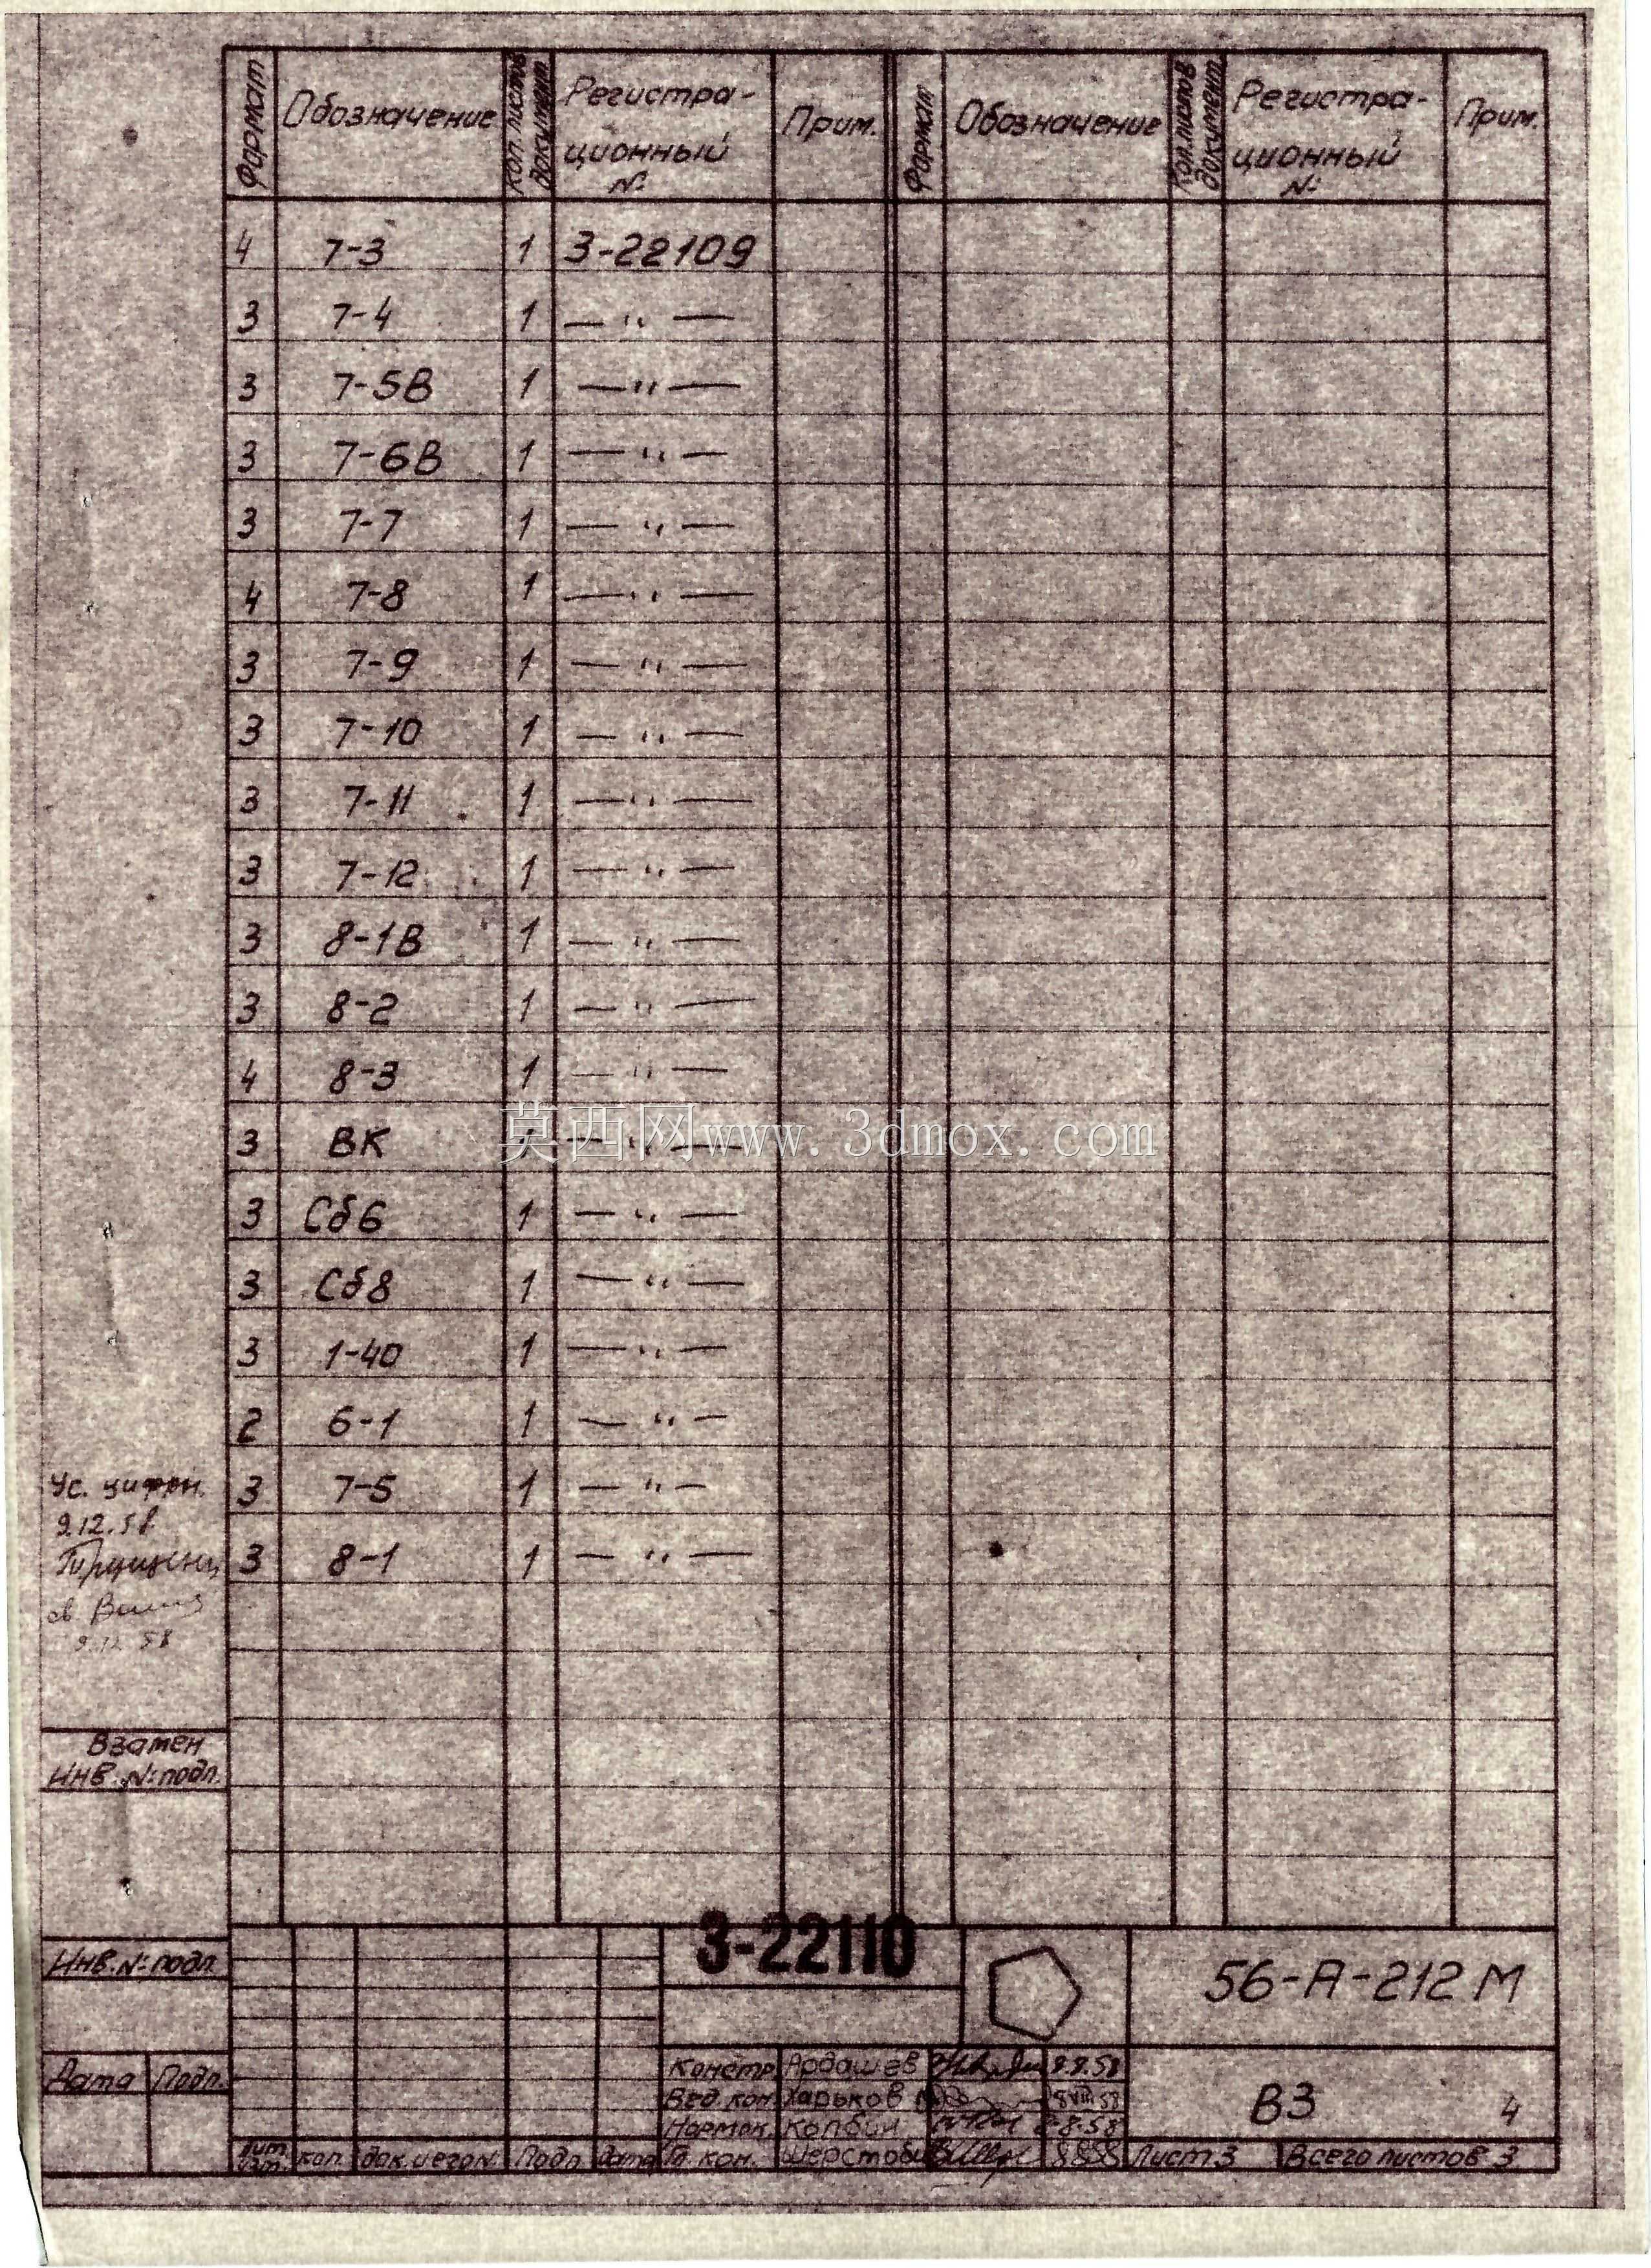 Формат Обозначение Кол. листов документ. Регистрационный № Прим. Формат Обозначение Кол. листов документ. Регистрационный № Прим.
4 7-3 1 3-22109
3 7-4 1 — " —
3 7-5В 1 — " —
3 7-6В 1 — " —
3 7-7 1 — " —
4 7-8 1 — " —
3 7-9 1 — " —
3 7-10 1 — " —
3 7-11 1 — " —
3 7-12 1 — " —
3 8-1В 1 — " —
3 8-2 1 — " —
4 8-3 1 — " —
3 ВК — " —
莫西网www.3dmox.com
3 Сб6 1 — " —
3 Сб8 1 — " —
3 1-40 1 — " —
2 6-1 1 — " —
3 7-5 1 — " —
3 8-1 1 — " —
9.12.58
Взамен
Инв. № подл.
Инв. № подл.
Дата Подп.
3-22110
56-А-212М
Констр. Ардашев 8.8.58
Вед. кон. Харьков 8 VIII 58
Нормок. Колбин 8.8.58
кол. Подп. Дата Гл. кон.
ВЗ 4
Лист 3 Всего листов 3